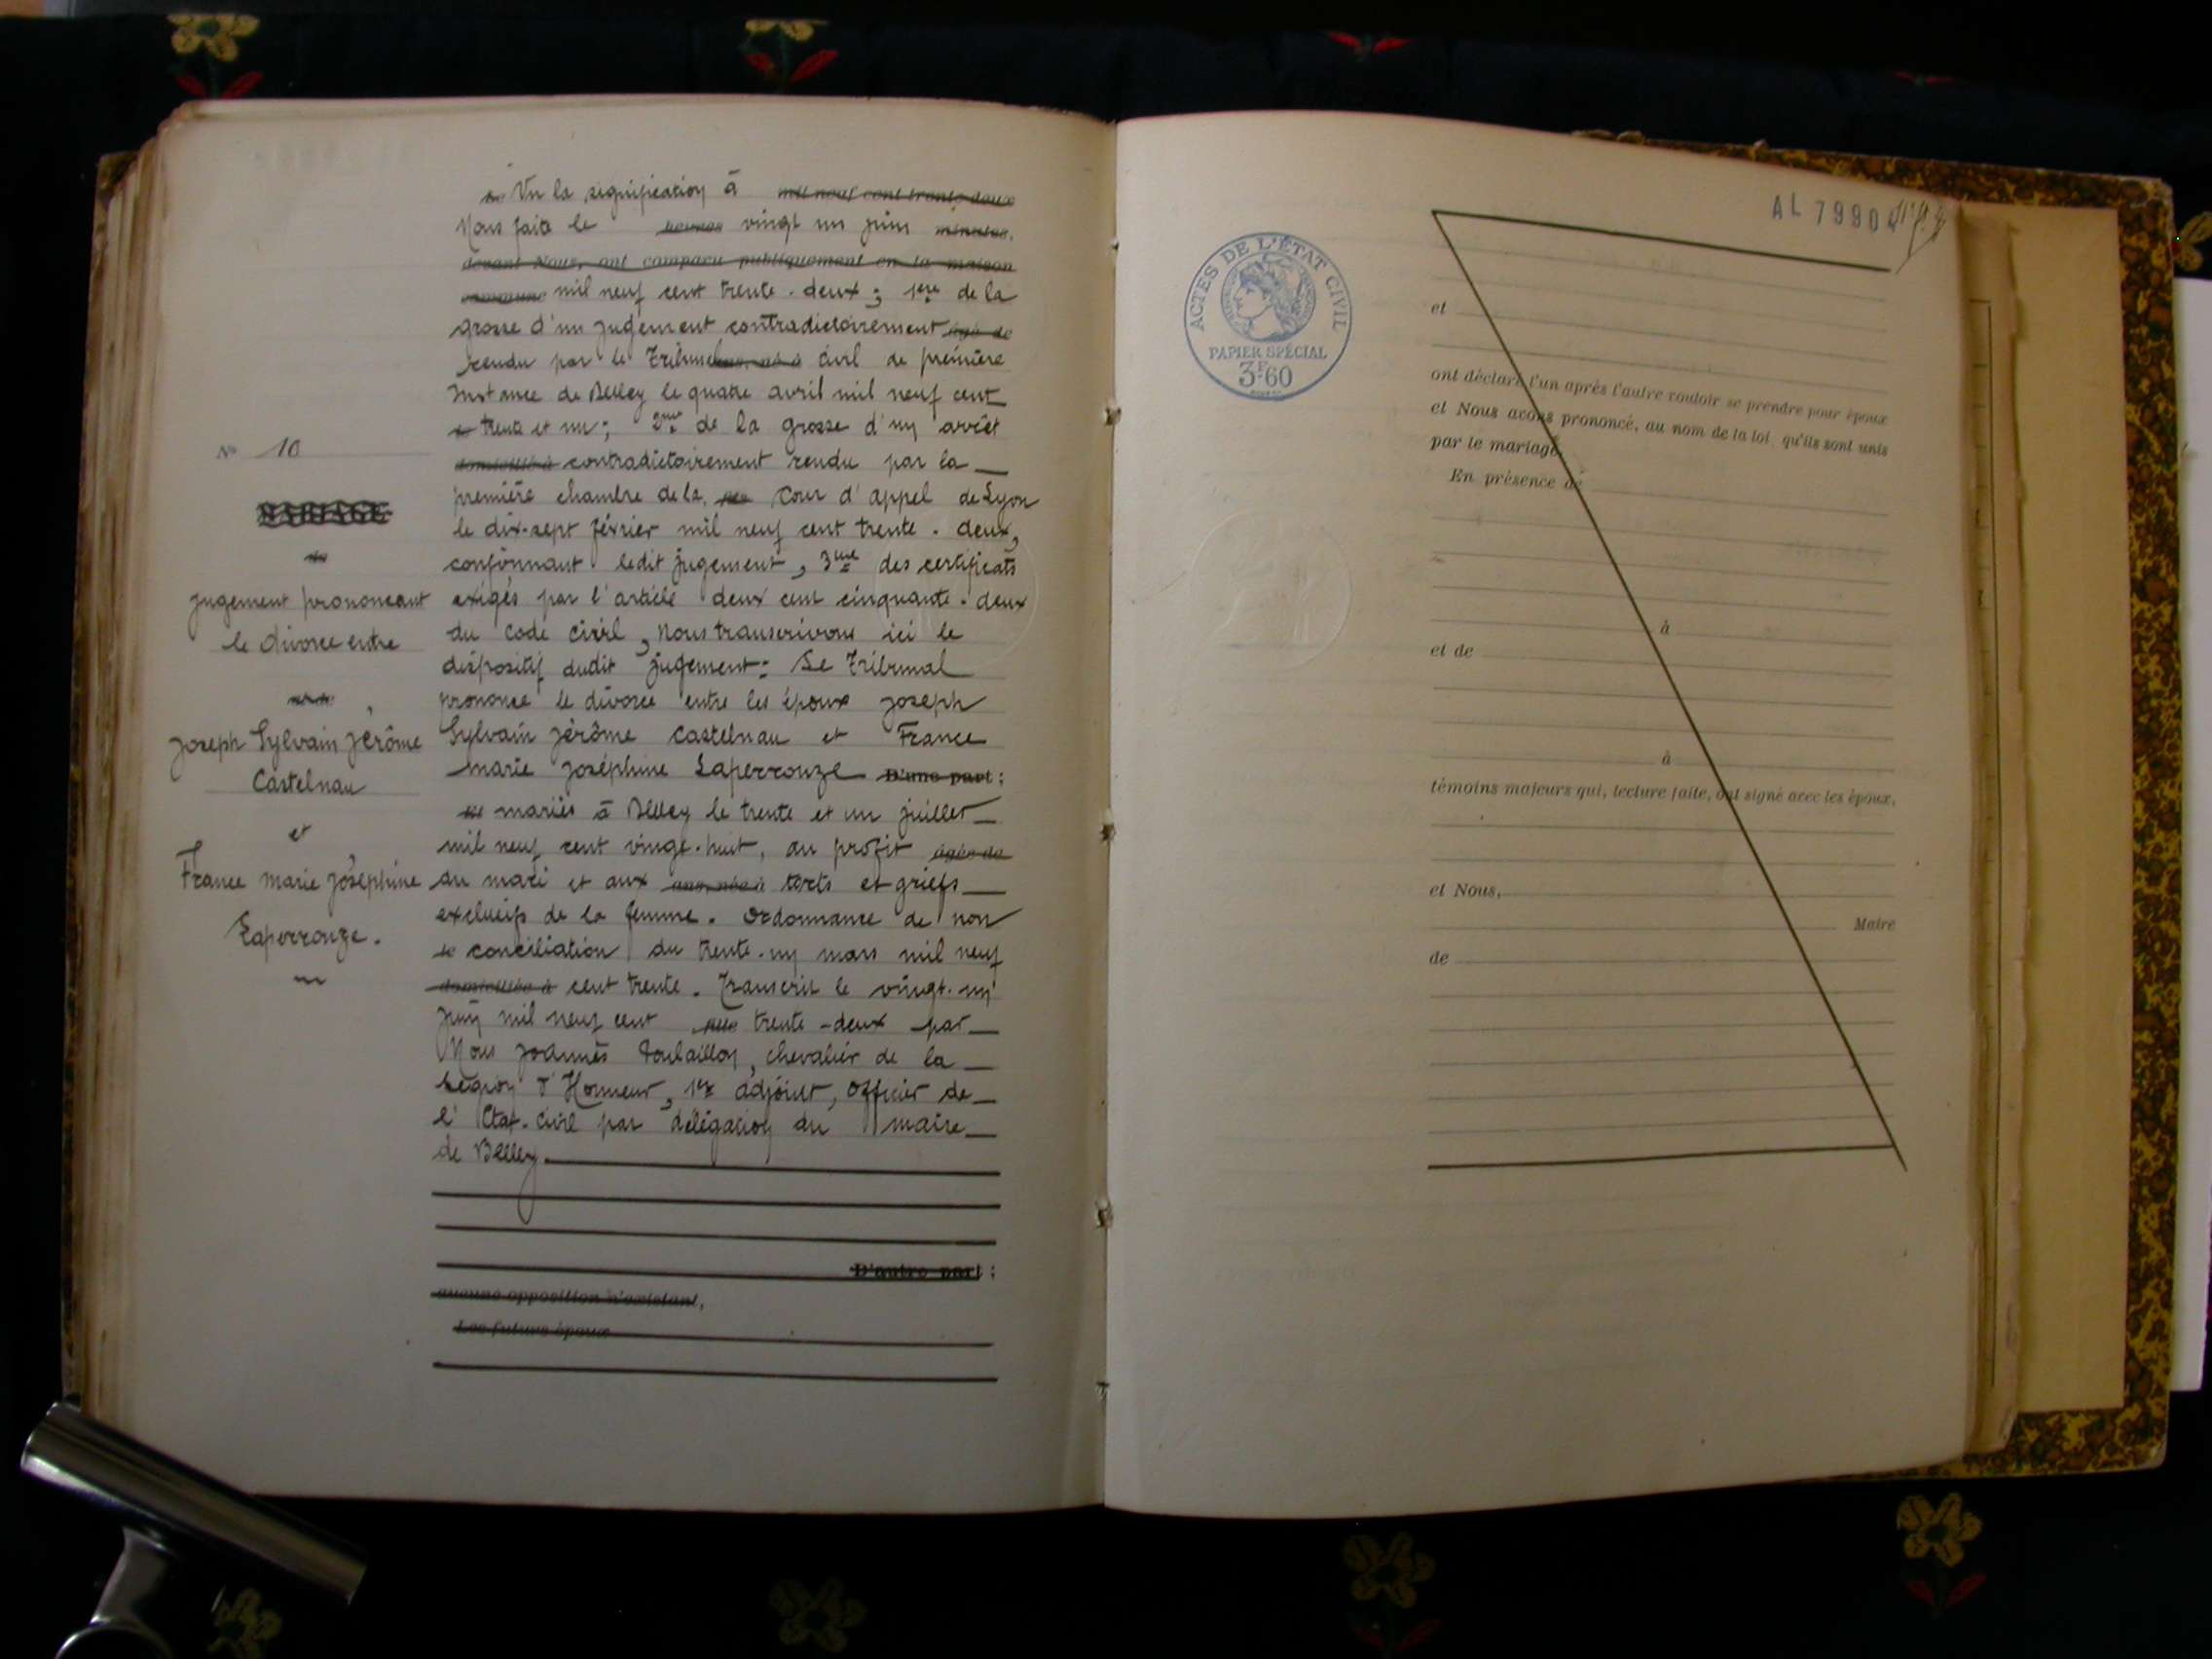 N° 10
MARIAGE
de
jugement prononcant
le divorce entre
Joseph Sylvain Jérôme
Castelnau
et
France Marie Joséphine
Laperrouze.
Vu la signification à mil neuf cent trente-deux
Nous faite le heures vingt un juin minutes,
devant Nous, ont comparu publiquement en la maison
commune mil neuf cent trente-deux ; 1ère de la
grosse d'un jugement contradictoirement âgé de
rendu par le Tribunal ans, né à civil de première
Instance de Belley le quatre avril mil neuf cent
trente et un ; 2me de la grosse d'un arrêt
domicilié à contradictoirement rendu par la
première chambre de la Cour d'appel de Lyon
le dix-sept février mil neuf cent trente-deux,
confirmant ledit jugement, 3me des certificats
exigés par l'article deux cent cinquante-deux
du code civil, Nous transcrivons ici le
dispositif dudit jugement : Le Tribunal
prononce le divorce entre les époux Joseph
Sylvain Jérôme Castelnau et France
Marie Joséphine Laperrouze D'une part ;
mariés à Belley le trente et un juillet
mil neuf cent vingt-huit, au profit âgée de
du mari et aux ans, née à torts et griefs
exclusifs de la femme. Ordonnance de non
conciliation du trente-un mars mil neuf
domiciliée à cent trente. Transcrit le vingt-un
juin mil neuf cent trente-deux par
Nous Joannès Toulaillon, chevalier de la
Légion d'Honneur, 1er adjoint, Officier de
l'Etat-Civil par délégation du maire
de Belley.
D'autre part ;
aucune opposition n'existant,
Les futurs époux
AL 7990
ACTES DE L'ÉTAT CIVIL
PAPIER SPÉCIAL
3F60
et
ont déclaré l'un après l'autre vouloir se prendre pour époux
et Nous avons prononcé, au nom de la loi, qu'ils sont unis
par le mariage.
En présence de
à
et de
à
témoins majeurs qui, lecture faite, ont signé avec les époux,
et Nous,
Maire
de